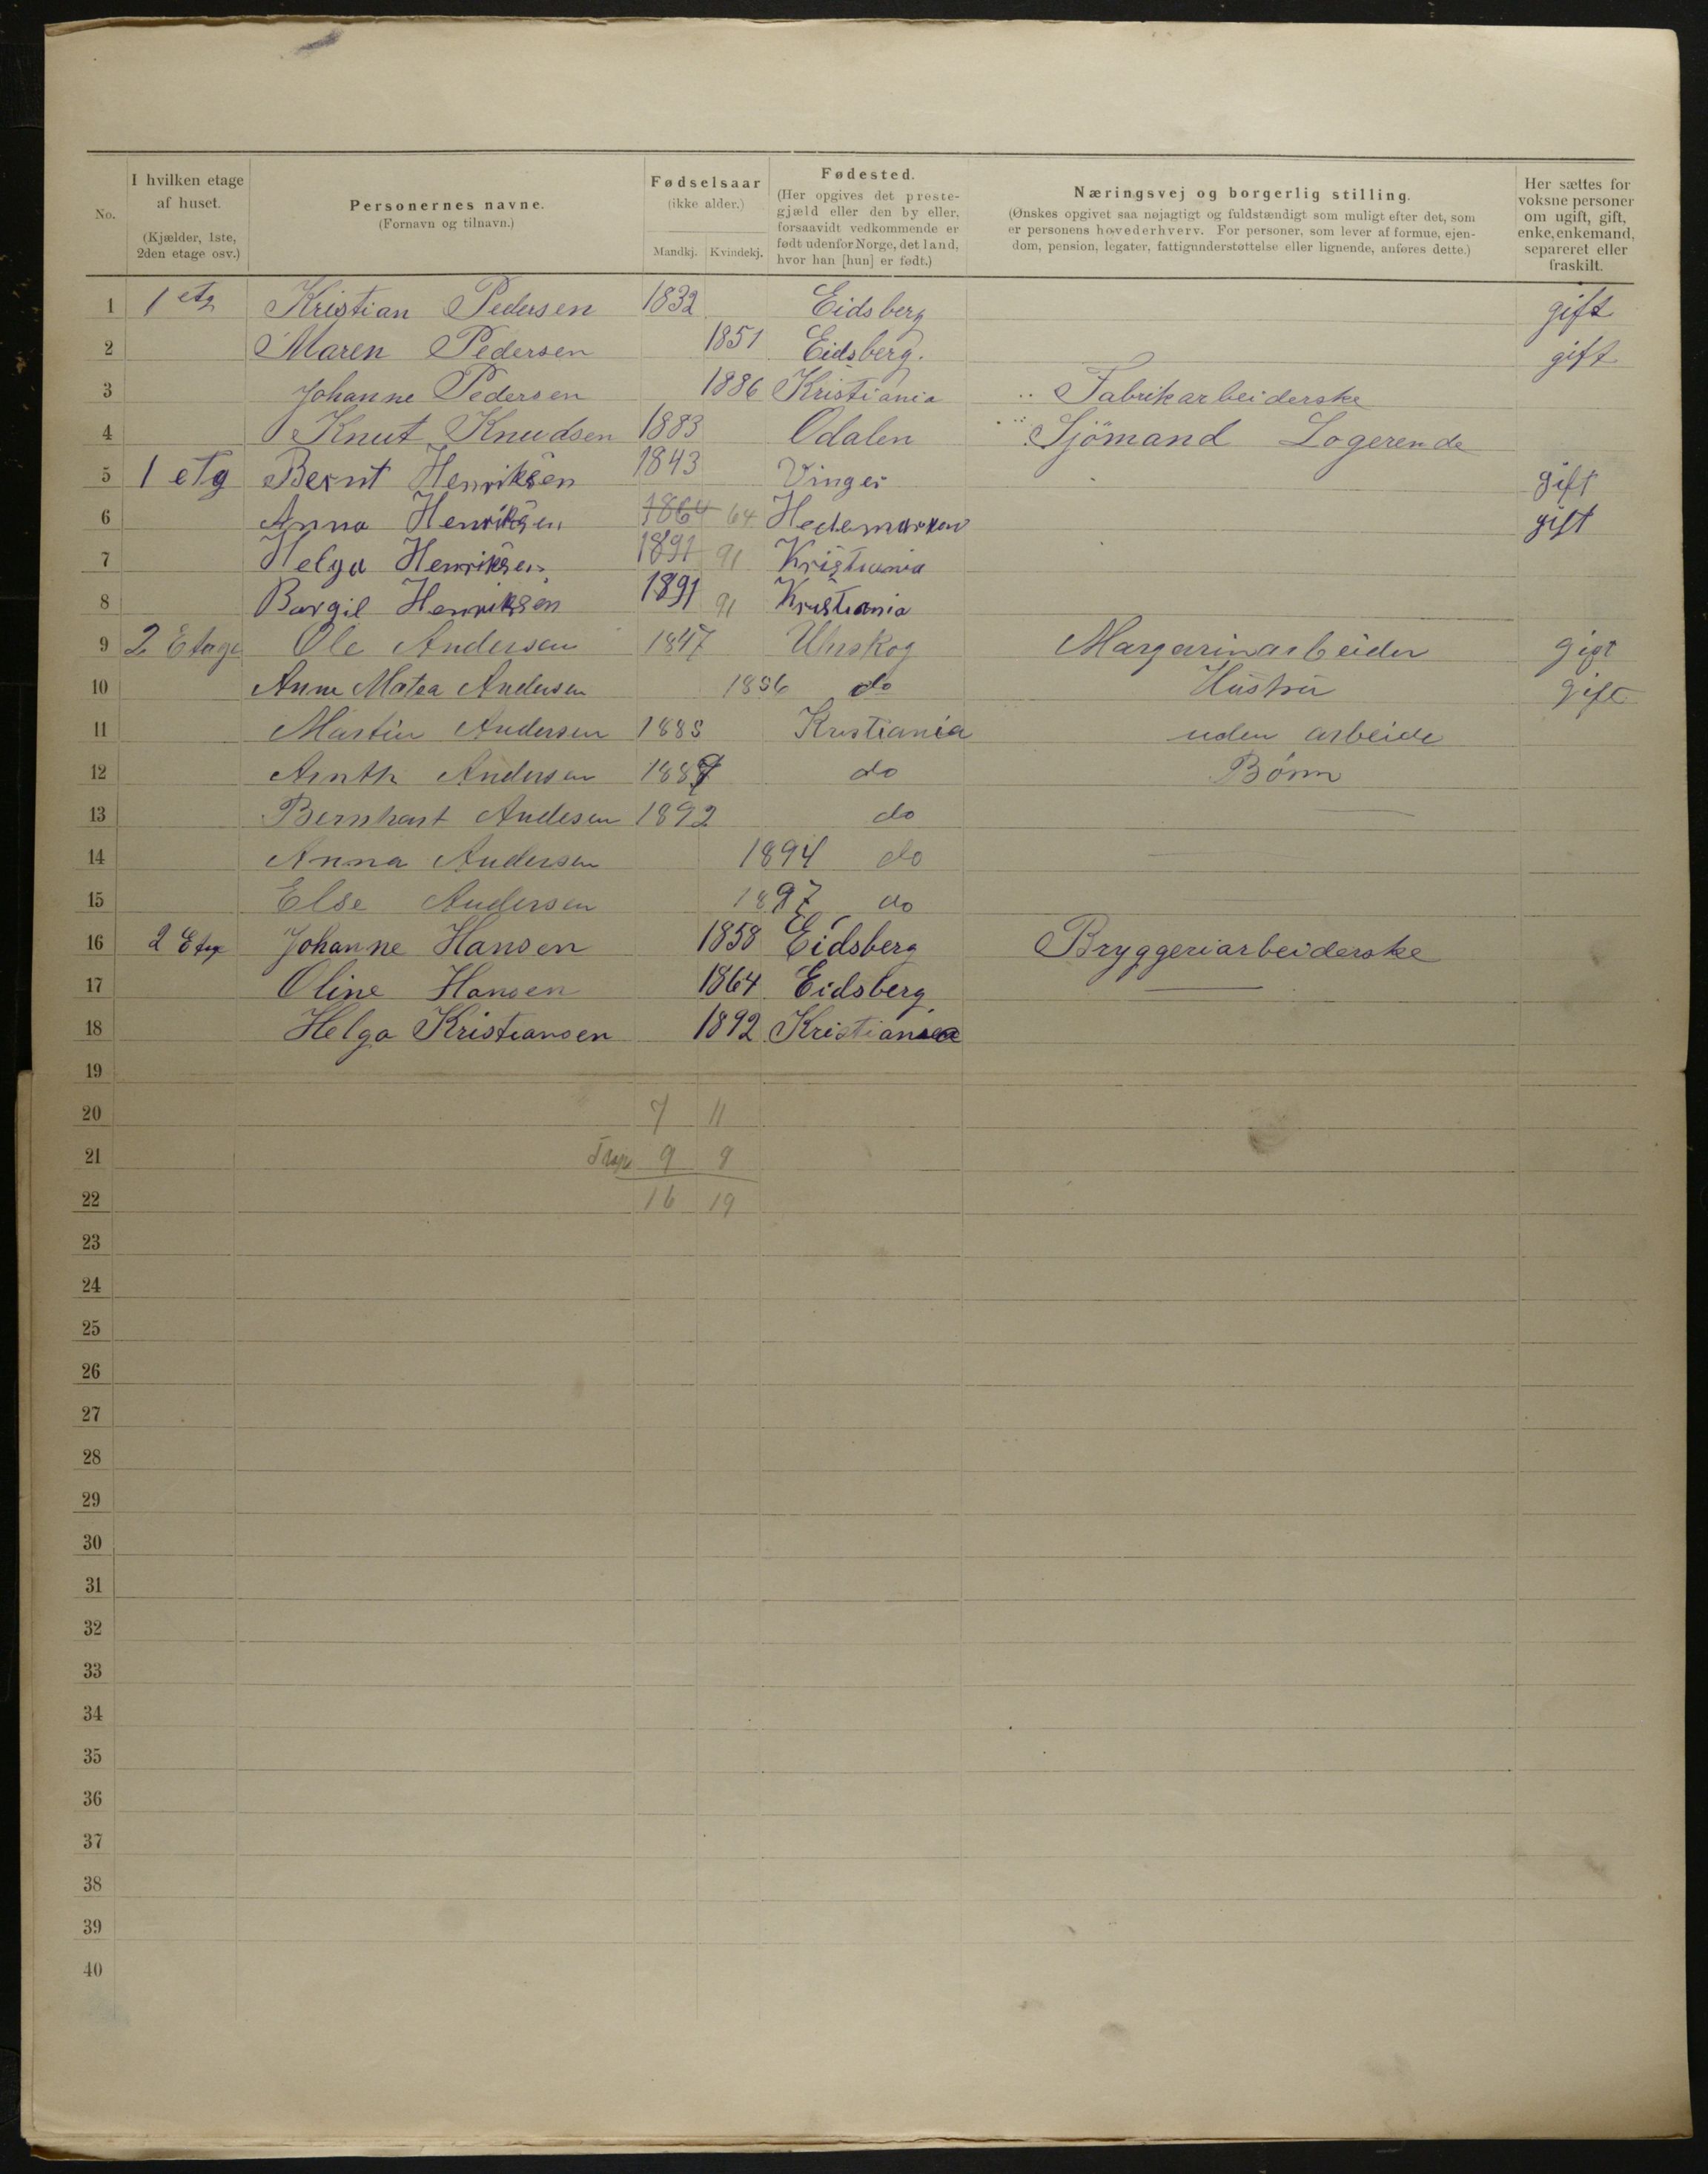 No.
I hvilken etage af huset. (Kjælder, 1ste, 2den etage osv.)
Personernes navne. (Fornavn og tilnavn.)
Fødselsaar (ikke alder.) Mandkj. Kvindekj.
Fødested. (Her opgives det prestegjæld eller den by eller, forsaavidt vedkommende er født udenfor Norge, det land, hvor han [hun] er født.)
Næringsvej og borgerlig stilling. (Ønskes opgivet saa nøjagtigt og fuldstændigt som muligt efter det, som er personens hovederhverv. For personer, som lever af formue, ejendom, pension, legater, fattigunderstøttelse eller lignende, anføres dette.)
Her sættes for voksne personer om ugift, gift, enke, enkemand, separeret eller fraskilt.
1 1 etg Kristian Pedersen 1832 Eidsberg gift
2 Maren Pedersen 1851 Eidsberg. gift
3 Johanne Pedersen 1886 Kristiania Fabrikarbeiderske
4 Knut Knudsen 1883 Odalen Sjömand Logerende
5 1 etg Bernt Henriksen 1843 Vinger gift
6 Anna Henriksen 1864 64 Hedemarken gift
7 Helga Henriksen 1891 91 Kristiania
8 Borgil Henriksen 1891 91 Kristiania
9 2 Etage Ole Andersen 1847 Urskog Margarinarbeider gift
10 Anne Matea Andersen 1856 do Hustru gift
11 Martin Andersen 1885 Kristiania uden arbeide
12 Arnth Andersen 1887 do Børn
13 Bernhart Andesen 1892 do
14 Anna Andersen 1894 do
15 Else Andersen 1897 do
16 2 Etg Johanne Hansen 1858 Eidsberg Bryggeriarbeiderske
17 Oline Hansen 1864 Eidsberg
18 Helga Kristiansen 1892 Kristiania
19
20 7 11
21 9 8
22 16 19
23
24
25
26
27
28
29
30
31
32
33
34
35
36
37
38
39
40